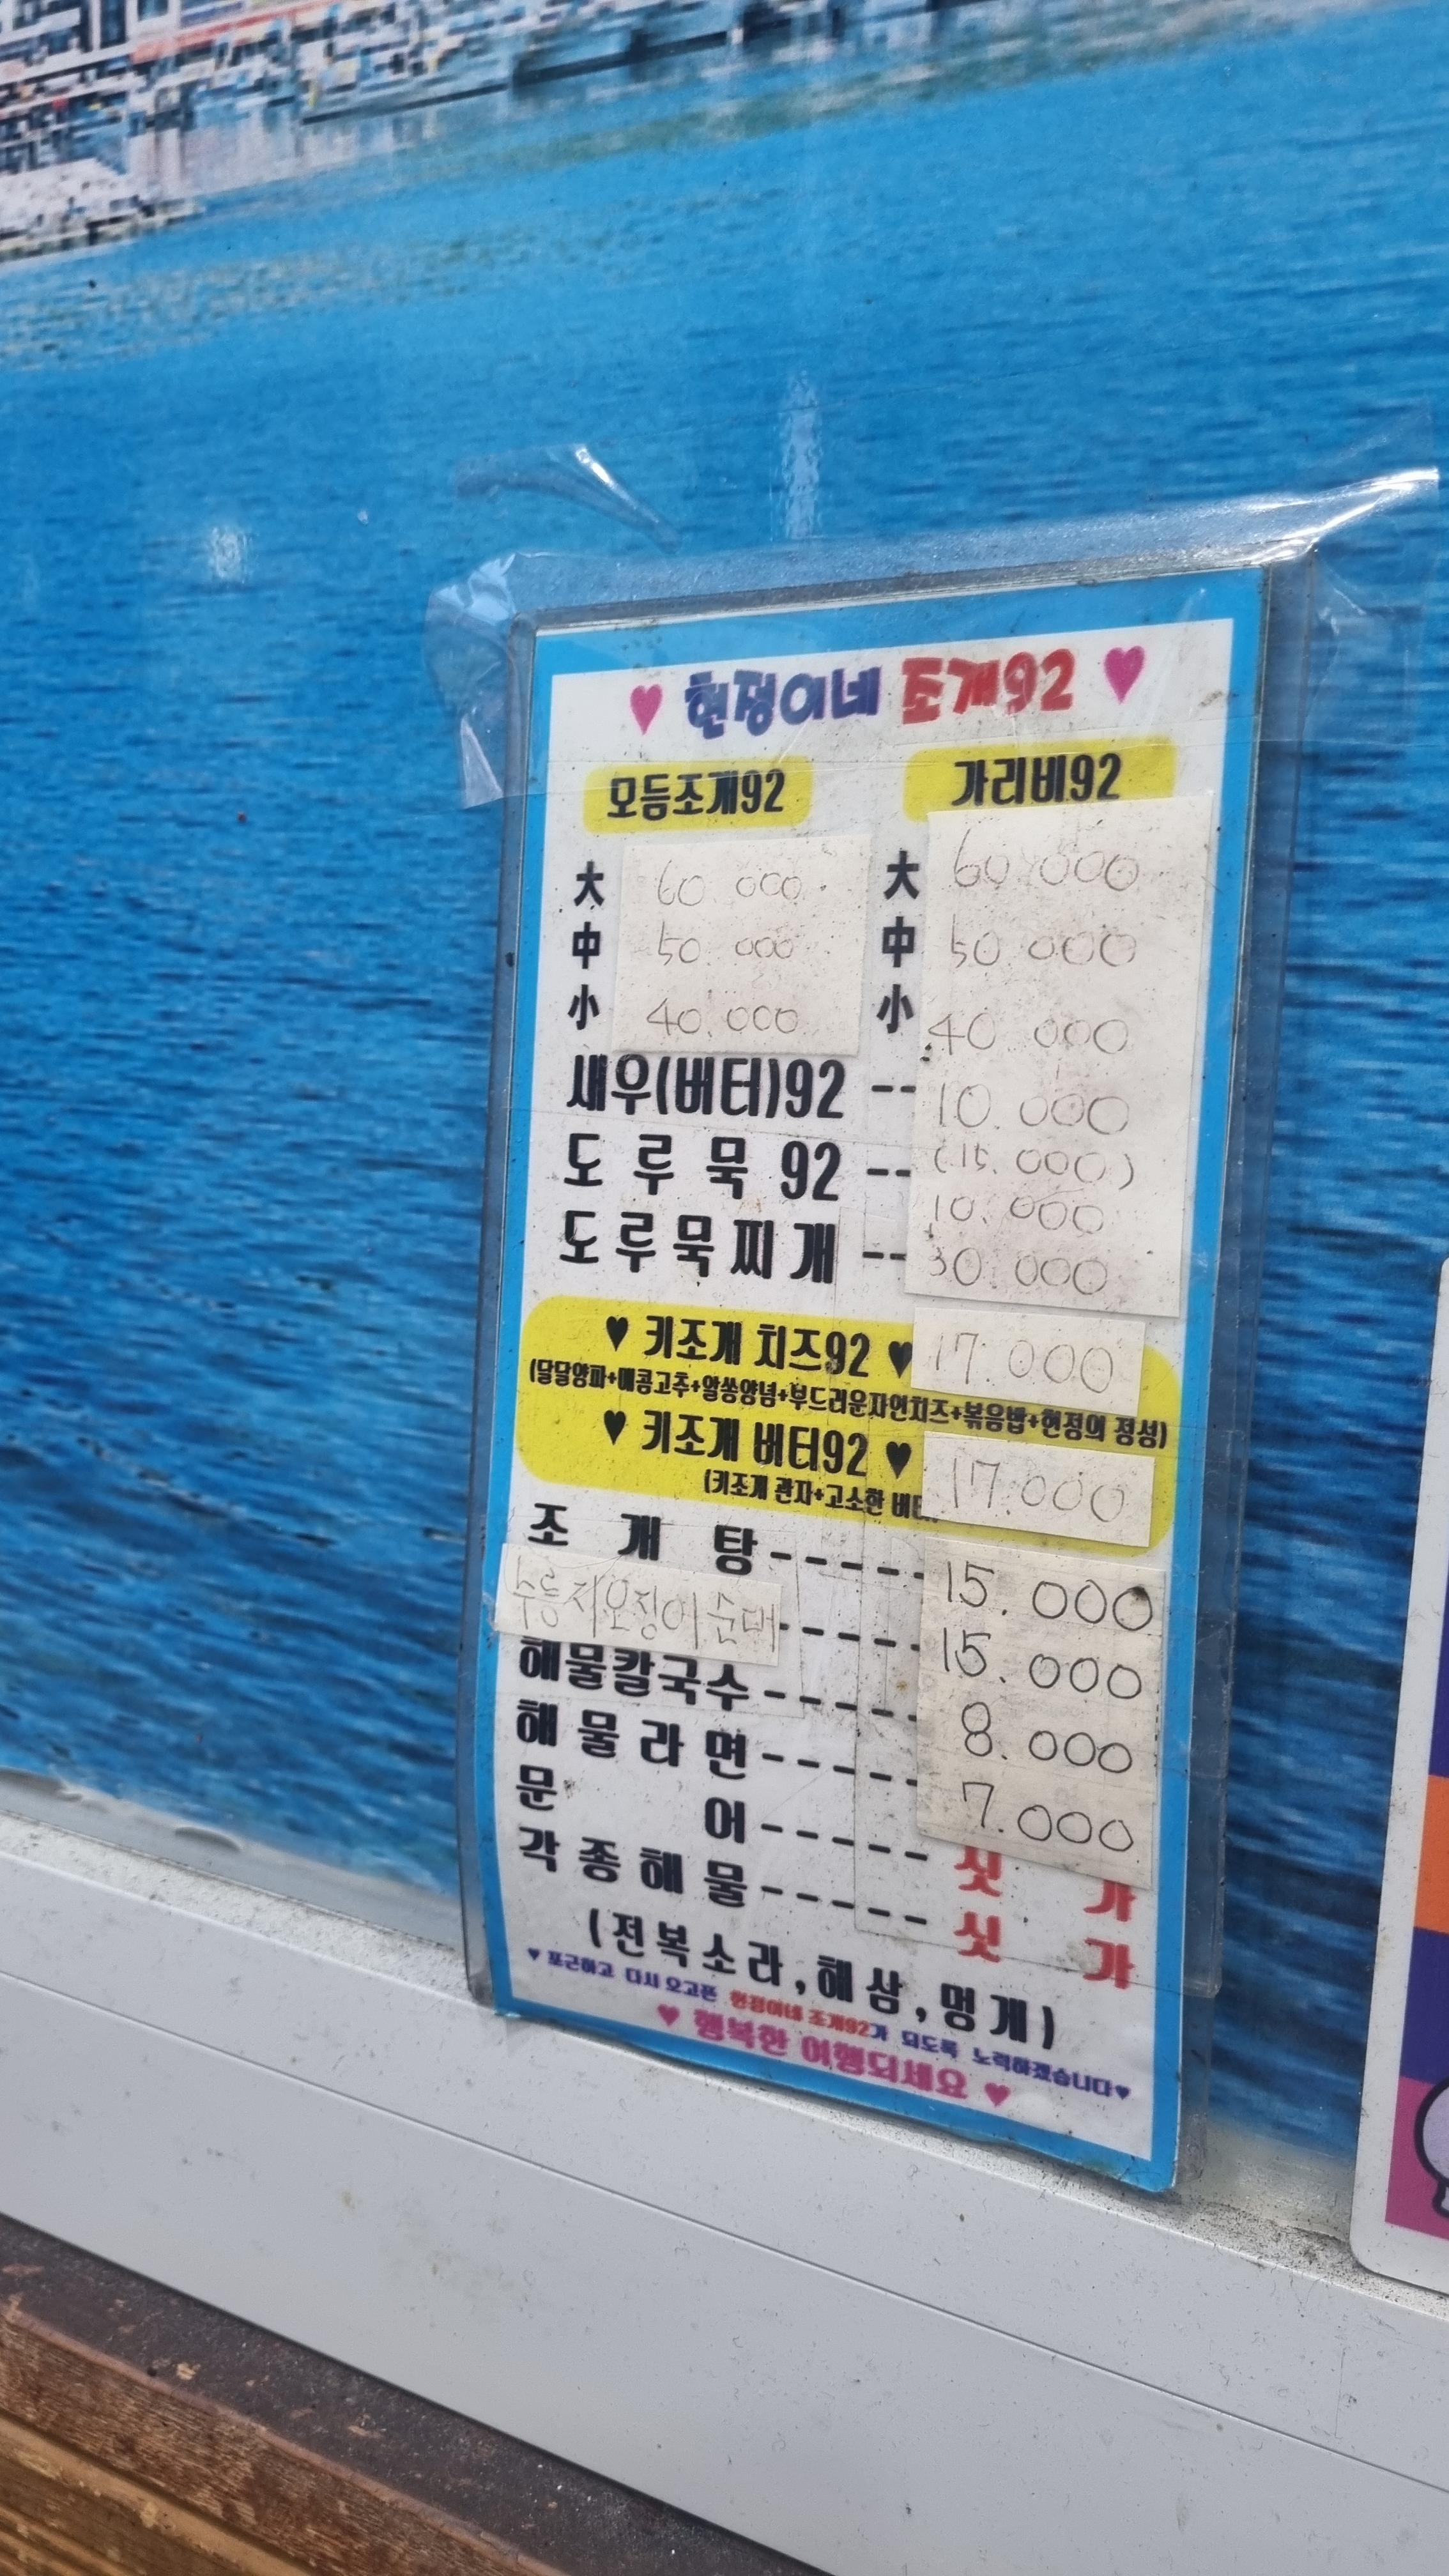 ♥ 현정이네 조개92 ♥
모듬조개92 가리비92
大 60.000 大 60.000
中 50.000 中 50.000
小 40.000 小 40.000
새우(버터)92 -- 10.000
(15.000)
도루묵 92 -- 10.000
도루묵찌개 -- 30.000
♥ 키조개 치즈92 ♥ 17.000
(달달양파+매콤고추+알쏭양념+부드러운자연치즈+볶음밥+현정의 정성)
♥ 키조개 버터92 ♥ 17.000
(키조개 관자+고소한 버터
조개탕----- 15.000
오징어순대----- 15.000
해물칼국수----- 8.000
해물라면----- 7.000
문어----- 싯가
각종해물----- 싯가
(전복소라,해삼,멍게)
♥ 포근하고 다시 오고픈 현정이네 조개92가 되도록 노력하겠습니다♥
♥ 행복한 여행되세요 ♥